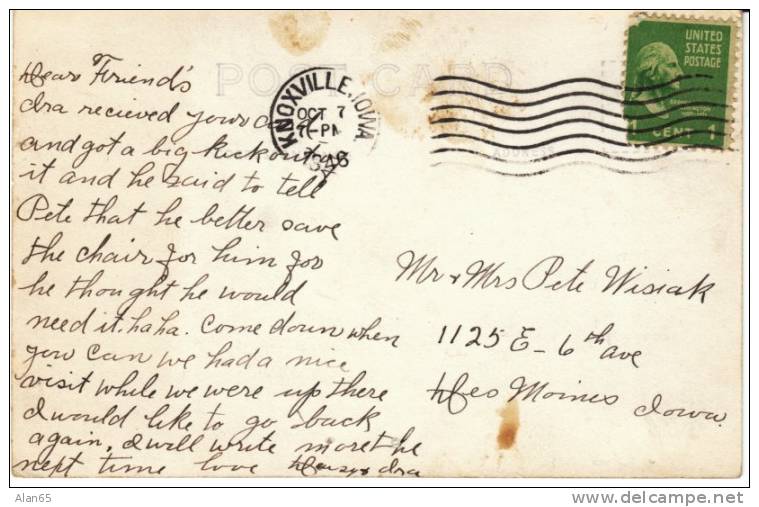 POST CARD
KNOXVILLE, IOWA
OCT 7
7-PM
1946
UNITED
STATES
POSTAGE
1 CENT 1
ADDRESS
Dear Friend's
Ira recieved your card
and got a big kick out of
it and he said to tell
Pete that he better save
the chair for him for
he thought he would
need it. haha. Come down when
you can we had a nice
visit while we were up there
I would like to go back
again, I will write more the
next time love Daisy & Ira
Mr & Mrs Pete Wisiak
1125 E - 6th ave
Des Moines Iowa.
Alan65
delcampe.net